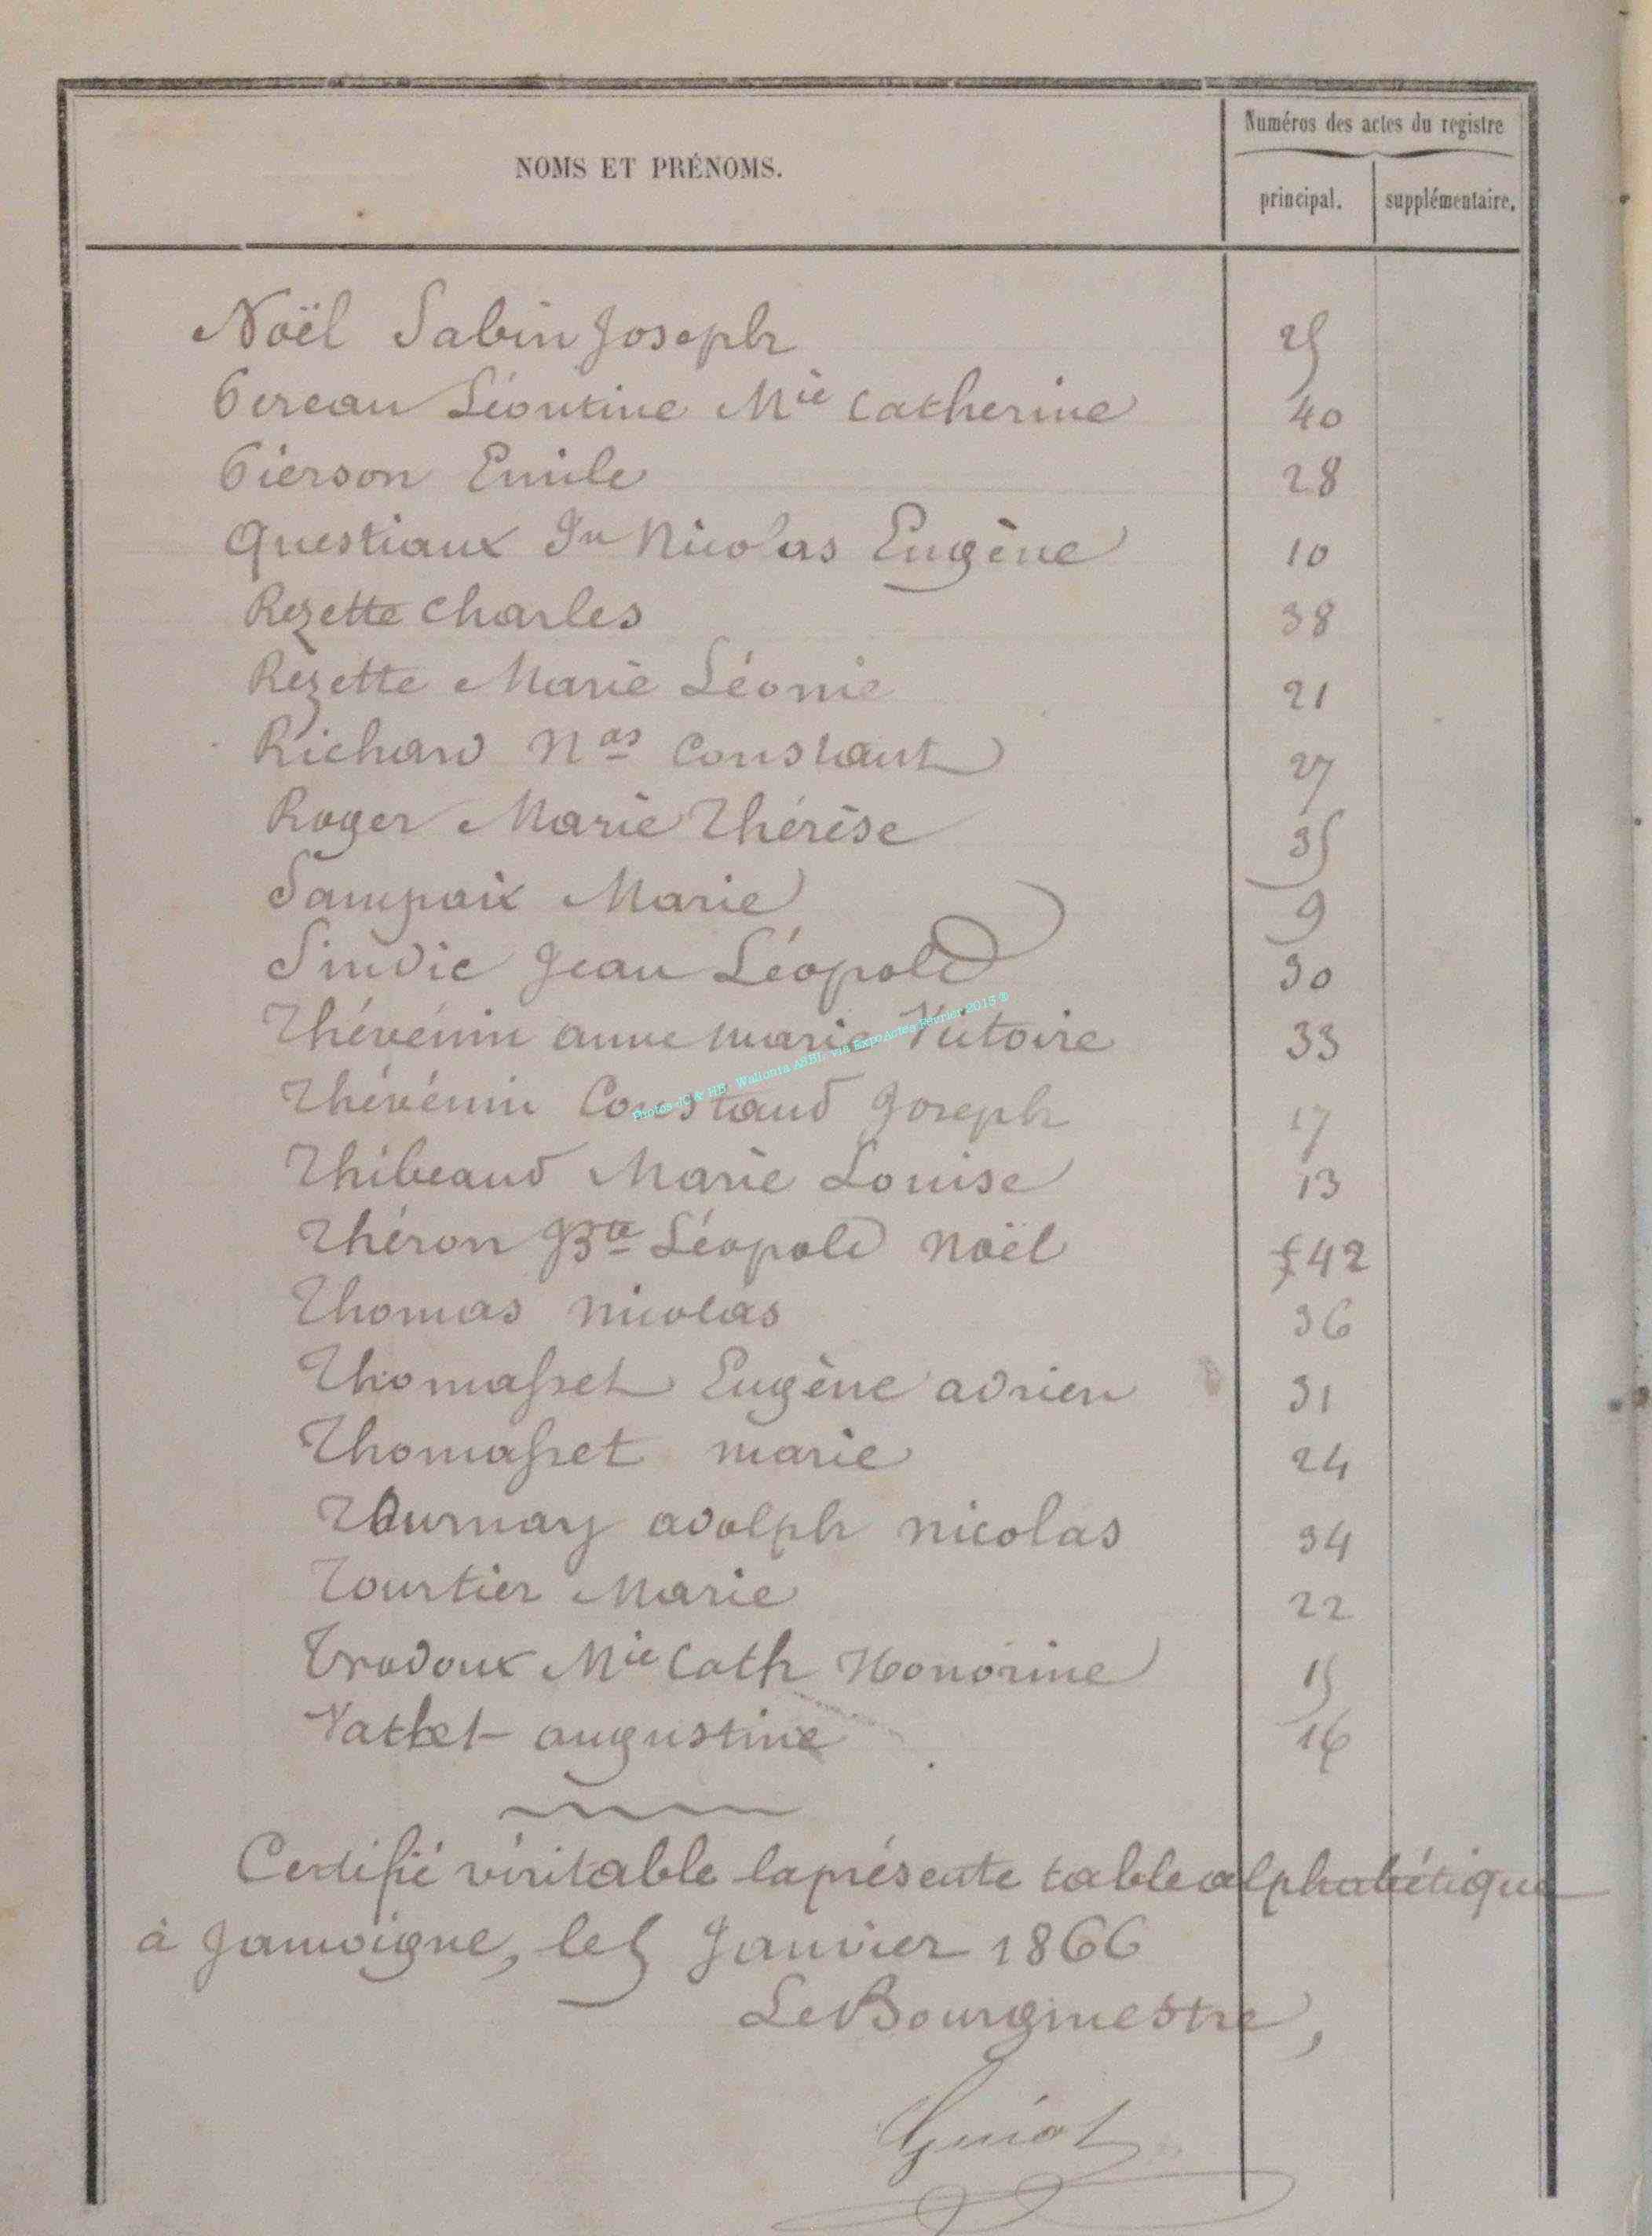 Numéros des actes du registre
NOMS ET PRÉNOMS.
principal. supplémentaire.
Noël Sabin Joseph 25
Pereau Léontine Mie Catherine 40
Pierson Emile 28
Questiaux Jn Nicolas Eugène 10
Rezette Charles 38
Rezette Marie Léonie 21
Richard Nas Constant 27
Roger Marie Thérèse 35
Sampaix Marie 9
Sindic Jean Léopold 30
Thévénin anne marie Victoire 33
Thévénin Constand Joseph 17
Thibeaud Marie Louise 13
Théron JBte Léopold Noël 42
Thomas Nicolas 36
Thomasset Eugène adrien 31
Thomasset marie 24
adolph nicolas 34
Tourtier Marie 22
Mie Cath Honorine 15
augustine 16
Certifié véritable la présente table alphabétique
à Jamoigne, le 5 Janvier 1866
Le Bourgmestre,
Guiot
Photos JC & HB Wallonia ASBL via ExpoActes Février 2015 ®